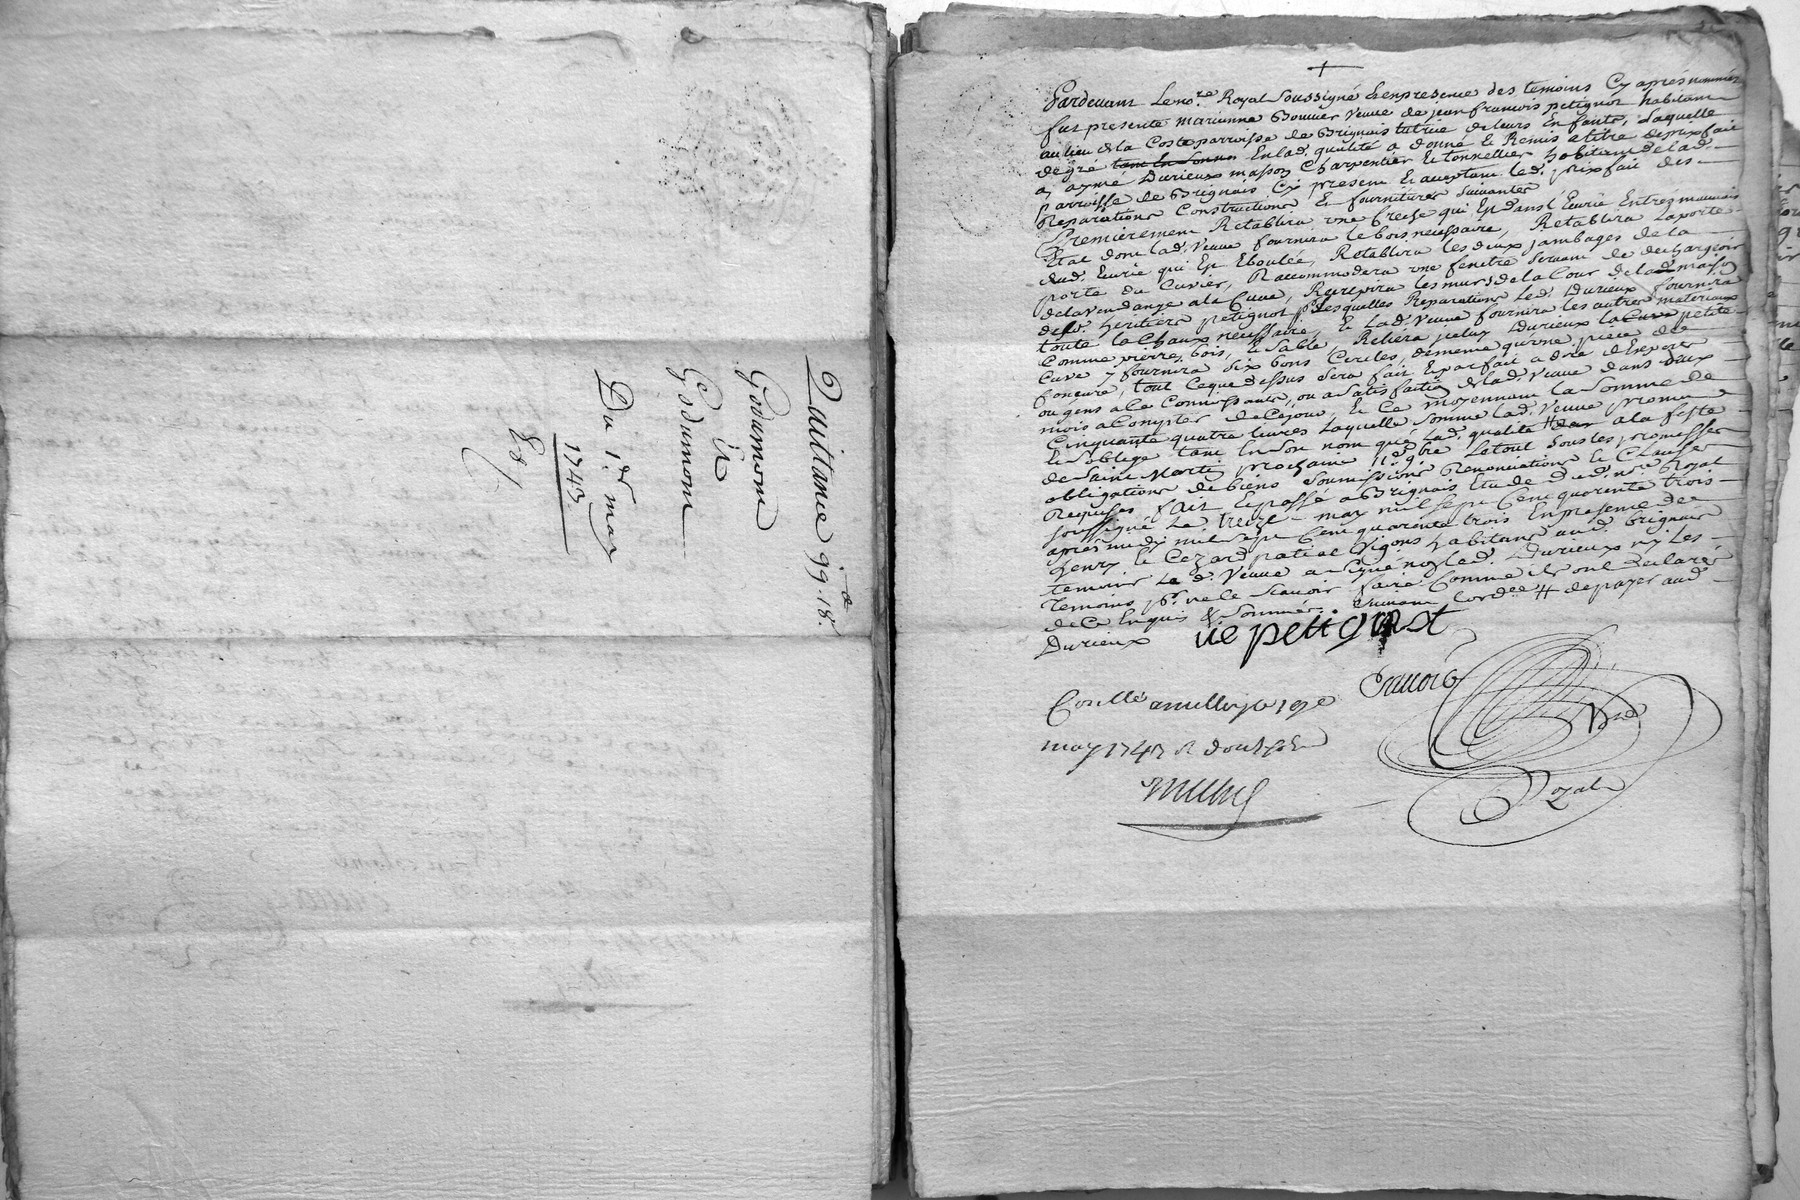 Quittance 99.lt 18.s
Godumont
à
Godumont
Du 1er may
1743
Et
Pardevant Le no.re Royal Soussigné et en presence des temoins Cy apres nommés
fut presente marianne Bouvier Veuve de jean francois petignot habitante
au lieu de la Coste parroisse de Brignais tutrice de leurs Enfants, Laquelle
de gré tant En Son no En lad. qualité a donné et Remis a titre de prixfait
a aymé Durieux masson Charpentier et tonnellier habitant de lad.
parroisse de Brignais Cy present et acceptant led. prixfait des
Reparations Constructions et fournitures Suivantes
Premierement Retablira une Creche qui Est dans l'Ecurie En tres mauvais
Etat dont lad. Veuve fournira le bois necessaire, Retablira La porte
dud. Ecurie qui Est Eboulée, Retablira les deux jambages de la
porte du Cuvier, Raccommodera une fenetre Servant de dechargeoir
de la vendange a la Cuve, Recrepira les murs de la Cour de la maison
desd. heritiers petignot pr. Lesquelles Reparations Led. Durieux fournira
toute la Chaux necessaire, et Lad. Veuve fournira les autres materiaux
Comme pierres, bois, et Sable, Reliera Durieux la Cuve petite
Cuve y fournira Six bons Cercles, de meme qu'une piece de
tout Ceque dessus Sera fait et parfait a dire d'Experts
ou gens a Ce Connoissants, ou a Satisfaction de lad. Veuve dans deux
mois a Compter de Cejour, Et Ce moyennant la Somme de
Cinquante quatre livres Laquelle Somme lad. Veuve promet
et S'oblige tant En Son nom que Lad. qualité # a la feste
de Saint Martin prochaine 11e 9bre Le tout Sous les promesses
obligations de biens Soumissions Renonciations et Clauses
Requises fait Et passé a Brignais Etude dud. no.re Royal
Soussigné Le treize may mil Sept Cent quarente trois
apres midy mil Sept Cent quarente trois En presence de
henry et Cezard patial Vigons habitans aud. Brignais
temoins La d. Veuve a Signé non led. Durieux ny Les
Temoins pr. ne le Scavoir faire Comme ils ont declaré
de Ce Enquis & Sommés. Suivant L'ord.ee # de payer aud
Durieux ve petignot
Not.re
Royal
Conllé a millery le 19e
may 1743 R douze sols